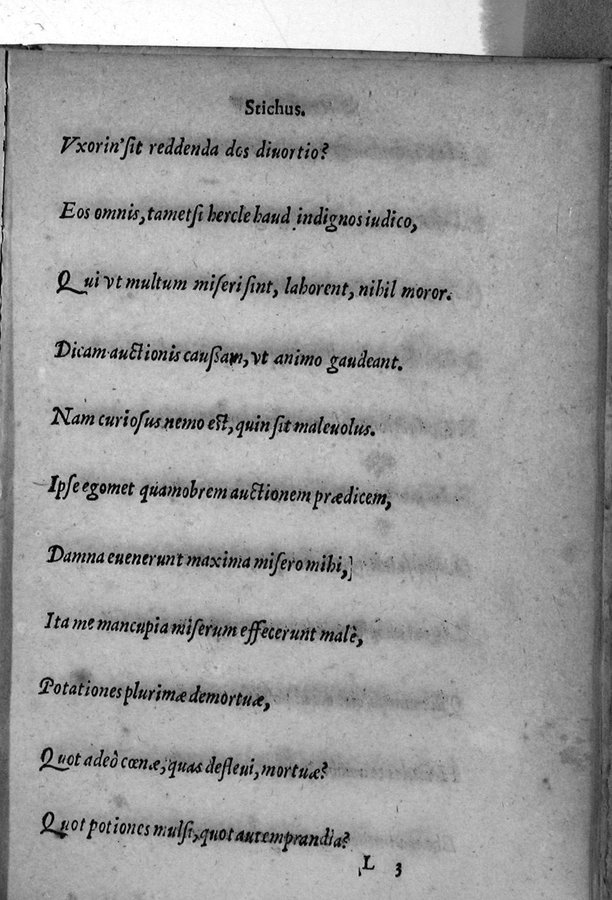 Stichus.
Vxorin' sit reddenda dos diuortio?
Eos omnis, tametsi hercle haud indignos iudico,
Qui vt multum miseri sint, laborent, nihil moror.
Dicam auctionis caussam, vt animo gaudeant.
Nam curiosus nemo est, quin sit maleuolus.
Ipse egomet quamobrem auctionem prædicem,
Damna euenerunt maxima misero mihi,]
Ita me mancupia miserum effecerunt malè,
Potationes plurimæ demortuæ,
Quot adeò cœnæ, quas defleui, mortuæ?
Quot potiones mulsi, quot autem prandia?
L 3